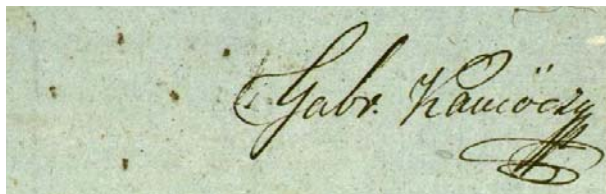 Gabr. Kamöczy